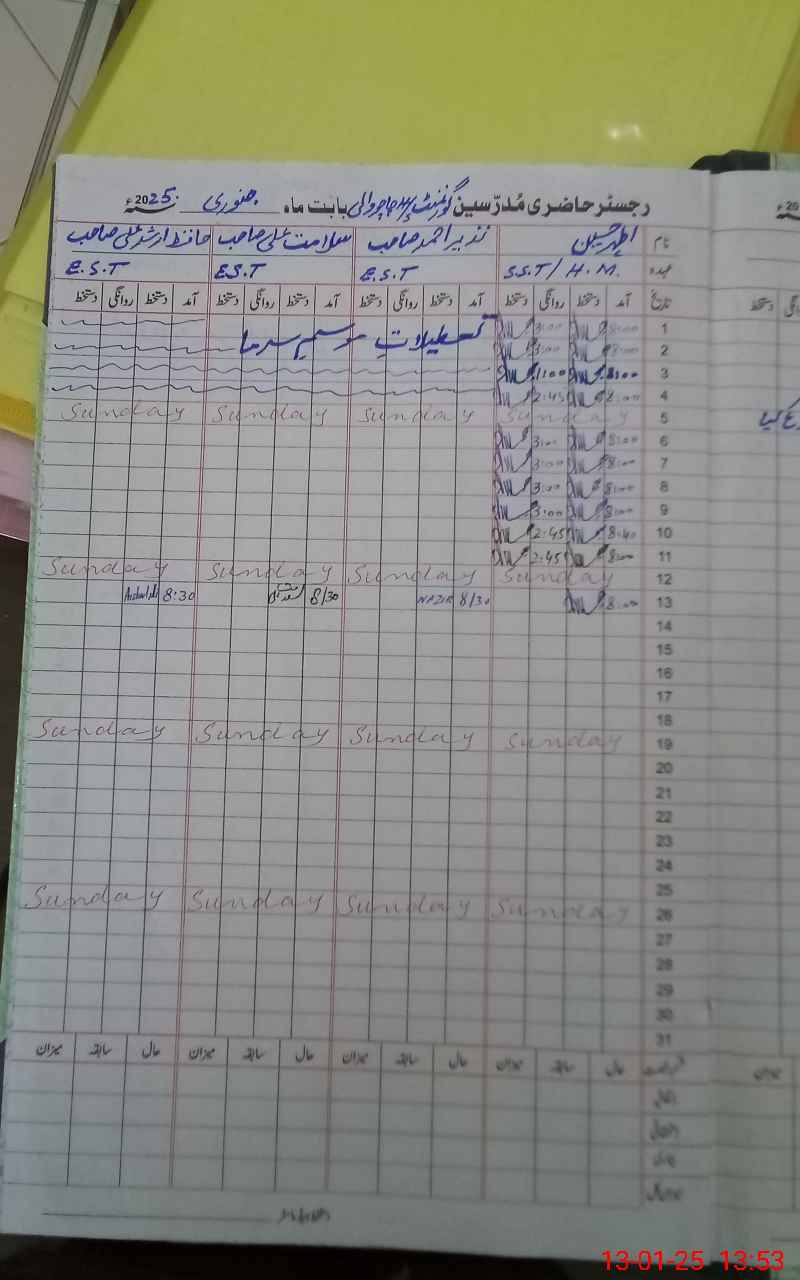 رجسٹر حاضری مُدرّسین گورنمنٹ بابت ماہ جنوری 2025ء
نام اطہر حسین نذیر احمد صاحب سلامت علی صاحب حافظ ارشد علی صاحب
عہدہ S.S.T / H.M. E.S.T E.S.T E.S.T
تاریخ آمد دستخط روانگی دستخط آمد دستخط روانگی دستخط آمد دستخط روانگی دستخط آمد دستخط روانگی دستخط
1 8:00 3:00 تعطیلات موسم سرما
2 8:00 3:00
3 8:00 1:00
4 8:00 2:45
5 Sunday Sunday Sunday Sunday
6 8:00 3:00
7 8:00 3:00
8 8:00 3:00
9 8:00 3:00
10 8:40 2:45
11 8:00 2:45
12 Sunday Sunday Sunday Sunday
13 8:00 8/30 NAZIR 8/30 8:30
14
15
16
17
18
19 Sunday Sunday Sunday Sunday
20
21
22
23
24
25
26 Sunday Sunday Sunday Sunday
27
28
29
30
31
حال سابقہ میزان حال سابقہ میزان حال سابقہ میزان حال سابقہ میزان
13-01-25 13:53